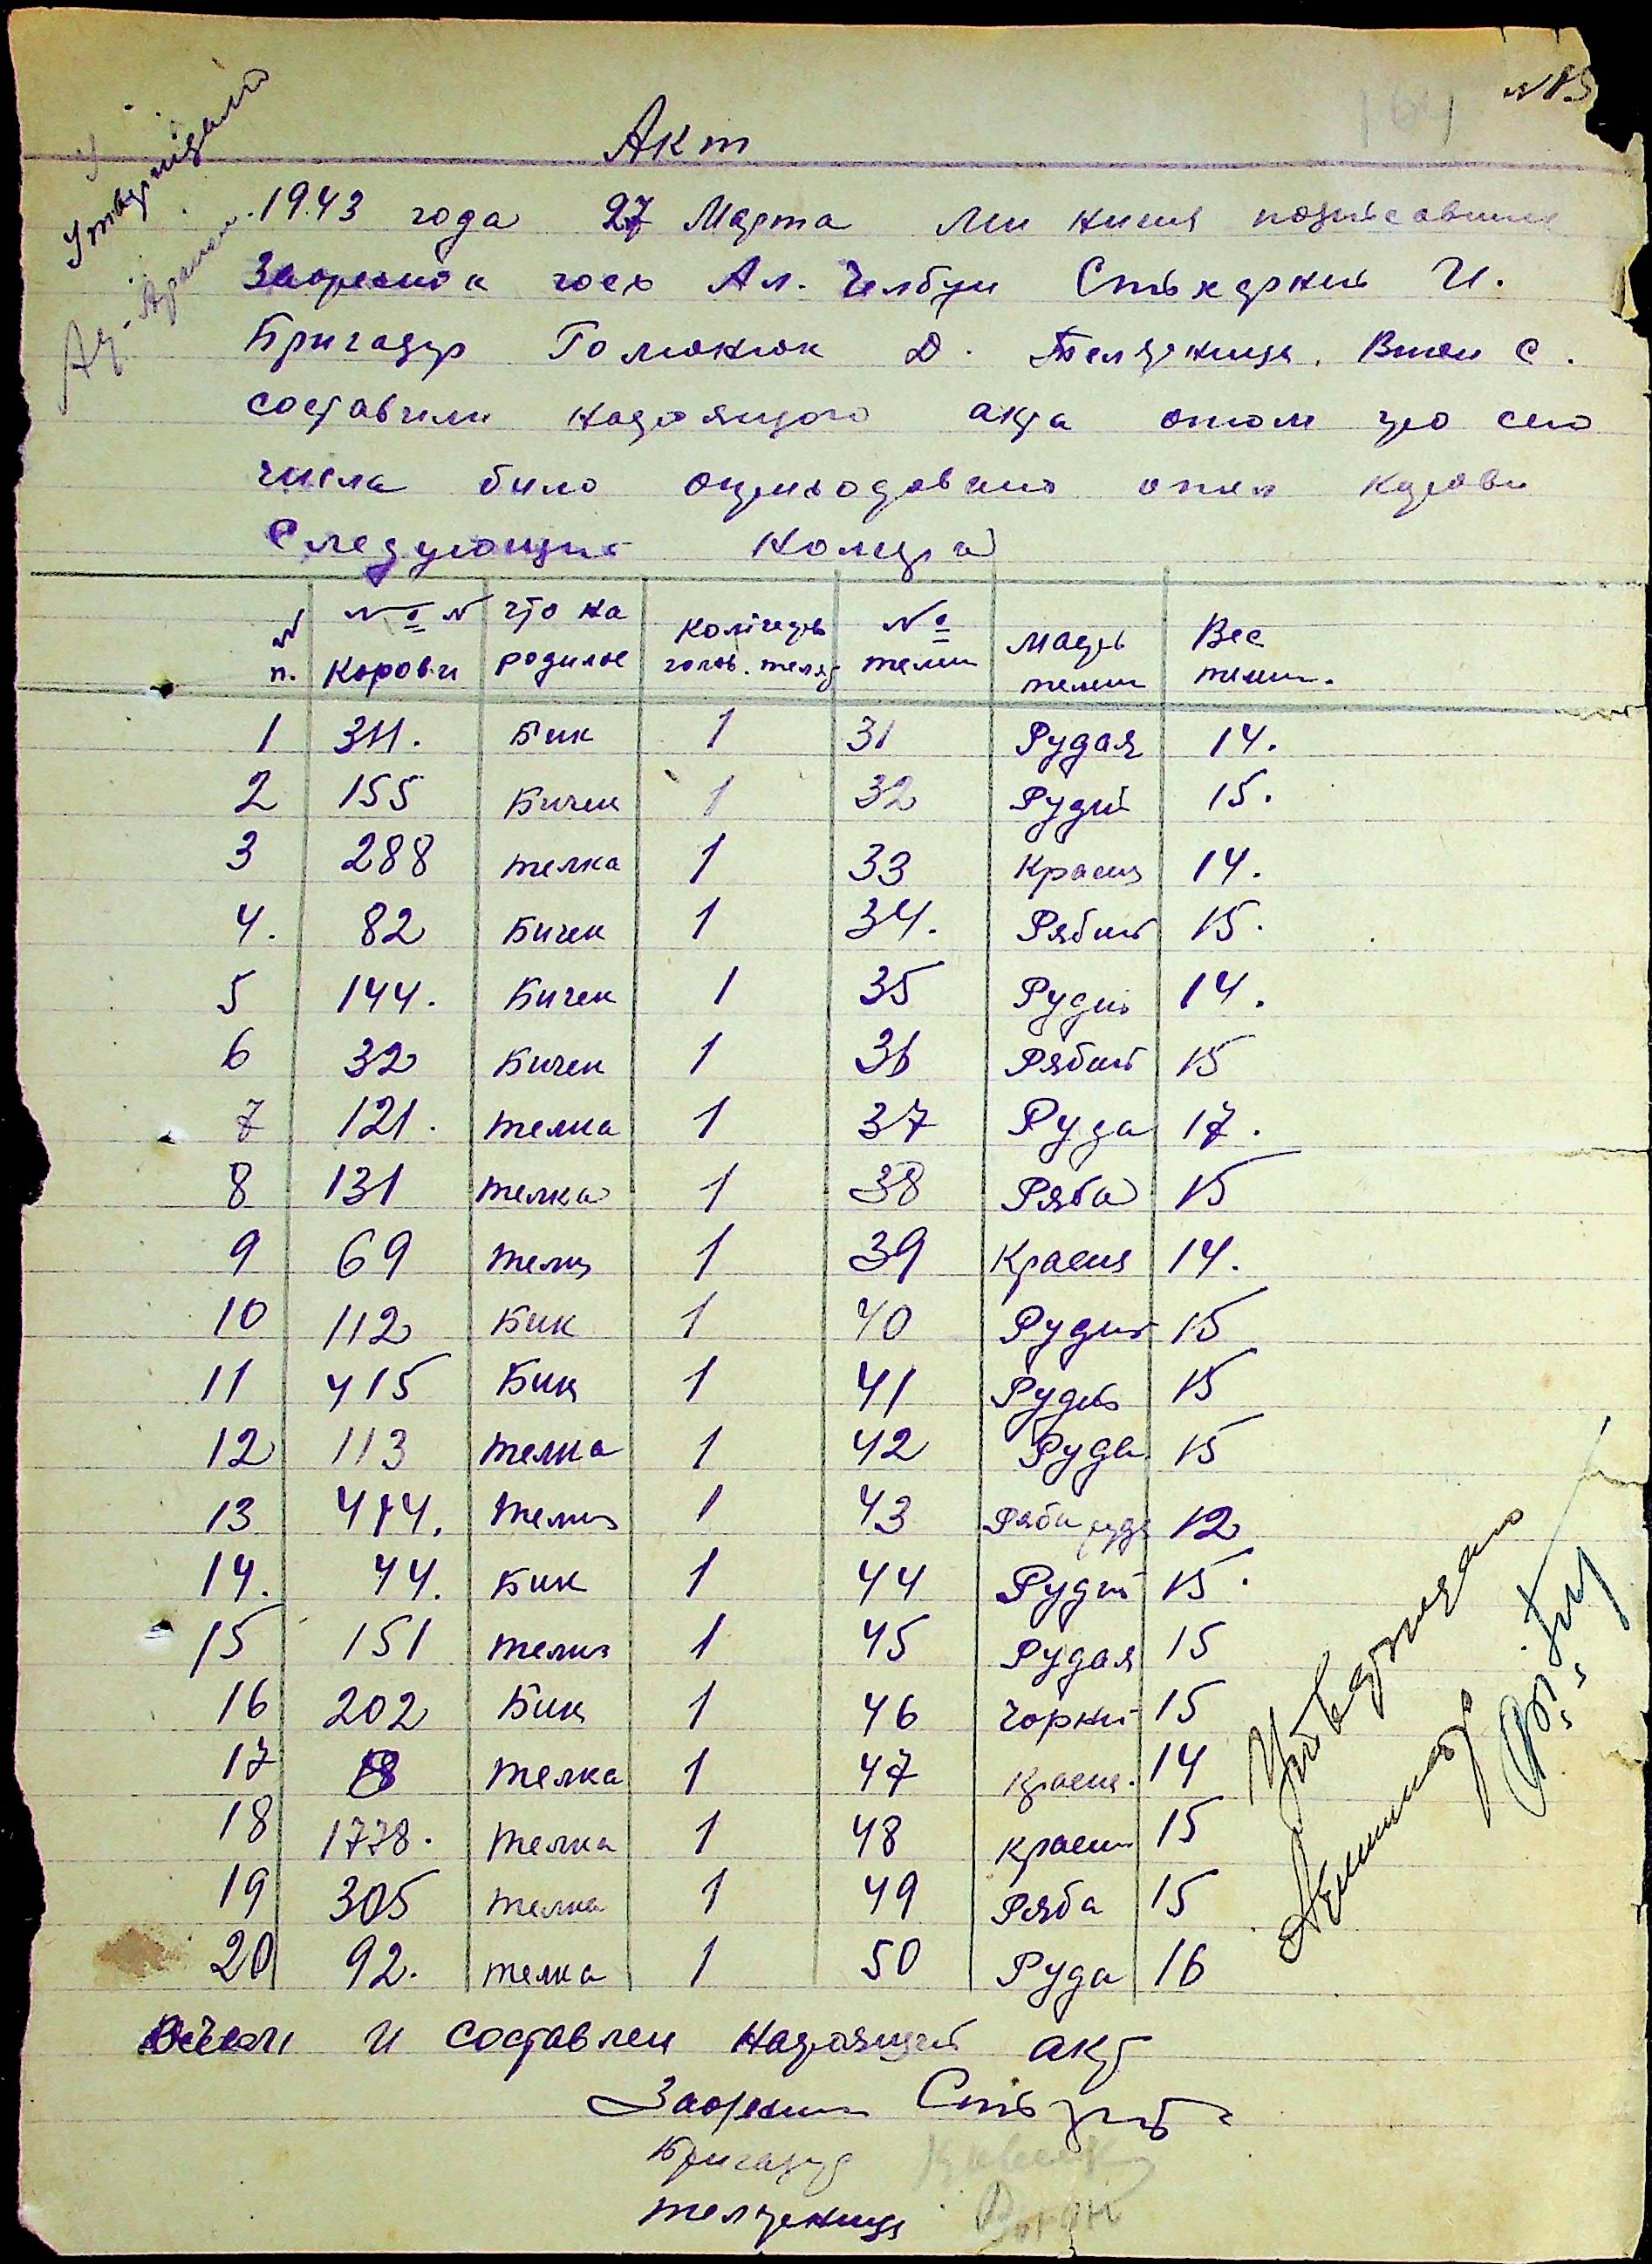 № 19
Утверждаю
Акт
1943 года 27 Марта Ми ниже подписавшие
Ал. Челбур И.
Бригадир Д. Телятница С.
составили настоящого акта отом що сего
числа било оприходовано от коров
Следующих номера
№ п. №№ Корови что народилос Количество голов. телят № телят масть телят Вес телят.
1 311. Бик 1 31 Рудая 14.
2 155 Бичек 1 32 Рудий 15.
3 288 телка 1 33 Красня 14.
4. 82 Бичек 1 34. Рябий 15.
5 144. Бичек 1 35 Рудий 14.
6 32 Бичек 1 36 Рябий 15
7 121. телка 1 37 Руда 17.
8 131 телка 1 38 Ряба 15
9 69 телка 1 39 Красня 14.
10 112 Бик 1 40 Рудий 15
11 415 Бик 1 41 Рудий 15
12 113 телка 1 42 Руда 15
13 414. телка 1 43 Ряба руда 12
14. 44. Бик 1 44 Рудий 15.
15 151 телка 1 45 Рудая 15
16 202 Бик 1 46 Чорний 15
17 телка 1 47 красн. 14
18 1778. телка 1 48 красня 15
19 305 телка 1 49 Ряба 15
20 92. телка 1 50 Руда 16
Утверждаю
В чем и составлен настоящий акт
Бригадир
телятница